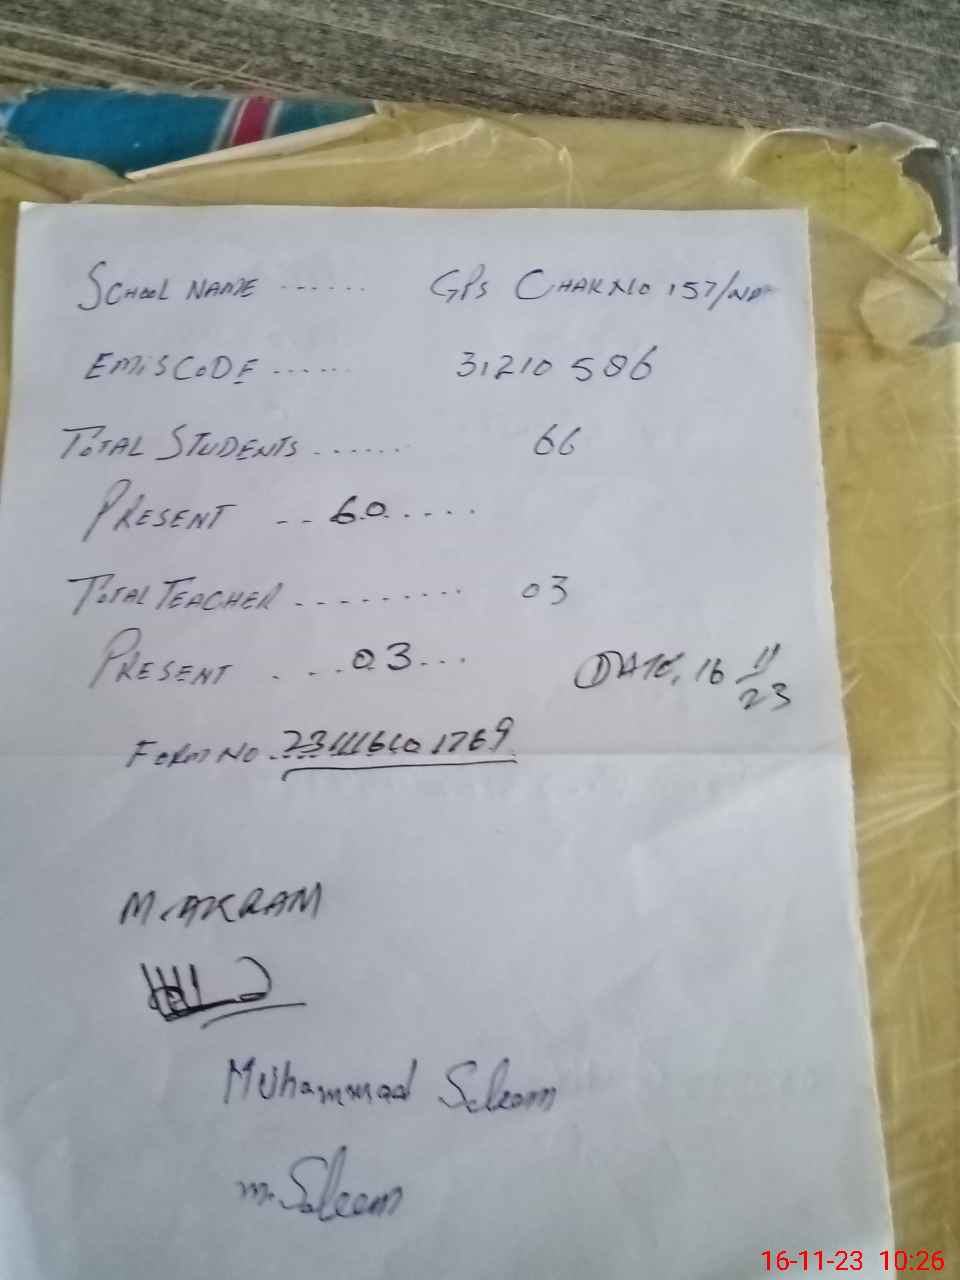 SCHOOL NAME ...... GPS CHAK NO 157/NP
EMIS CODE ...... 31210 586
TOTAL STUDENTS ...... 66
PRESENT .. 60 ....
TOTAL TEACHER ......... 03
PRESENT ... 03 ...
DATE, 16 11/23
FORM NO.
M. AKRAM
Muhammad Saleem
m. Saleem
16-11-23 10:26